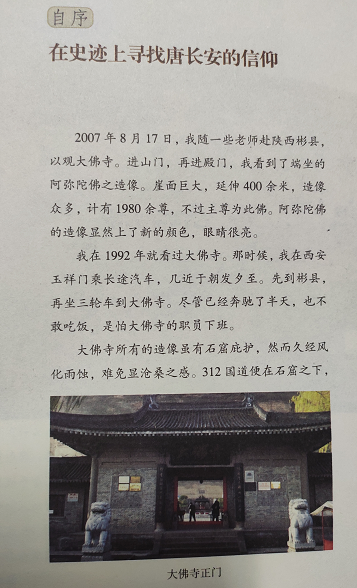 自序
在史迹上寻找唐长安的信仰
2007年8月17日，我随一些老师赴陕西彬县，
以观大佛寺。进山门，再进殿门，我看到了端坐的
阿弥陀佛之造像。崖面巨大，延伸400余米，造像
众多，计有1980余尊，不过主尊为此佛。阿弥陀佛
的造像显然上了新的颜色，眼睛很亮。
我在1992年就看过大佛寺。那时候，我在西安
玉祥门乘长途汽车，几近于朝发夕至。先到彬县，
再坐三轮车到大佛寺。尽管已经奔驰了半天，也不
敢吃饭，是怕大佛寺的职员下班。
大佛寺所有的造像虽有石窟庇护，然而久经风
化雨蚀，难免显沧桑之感。312国道便在石窟之下，
大佛寺正门